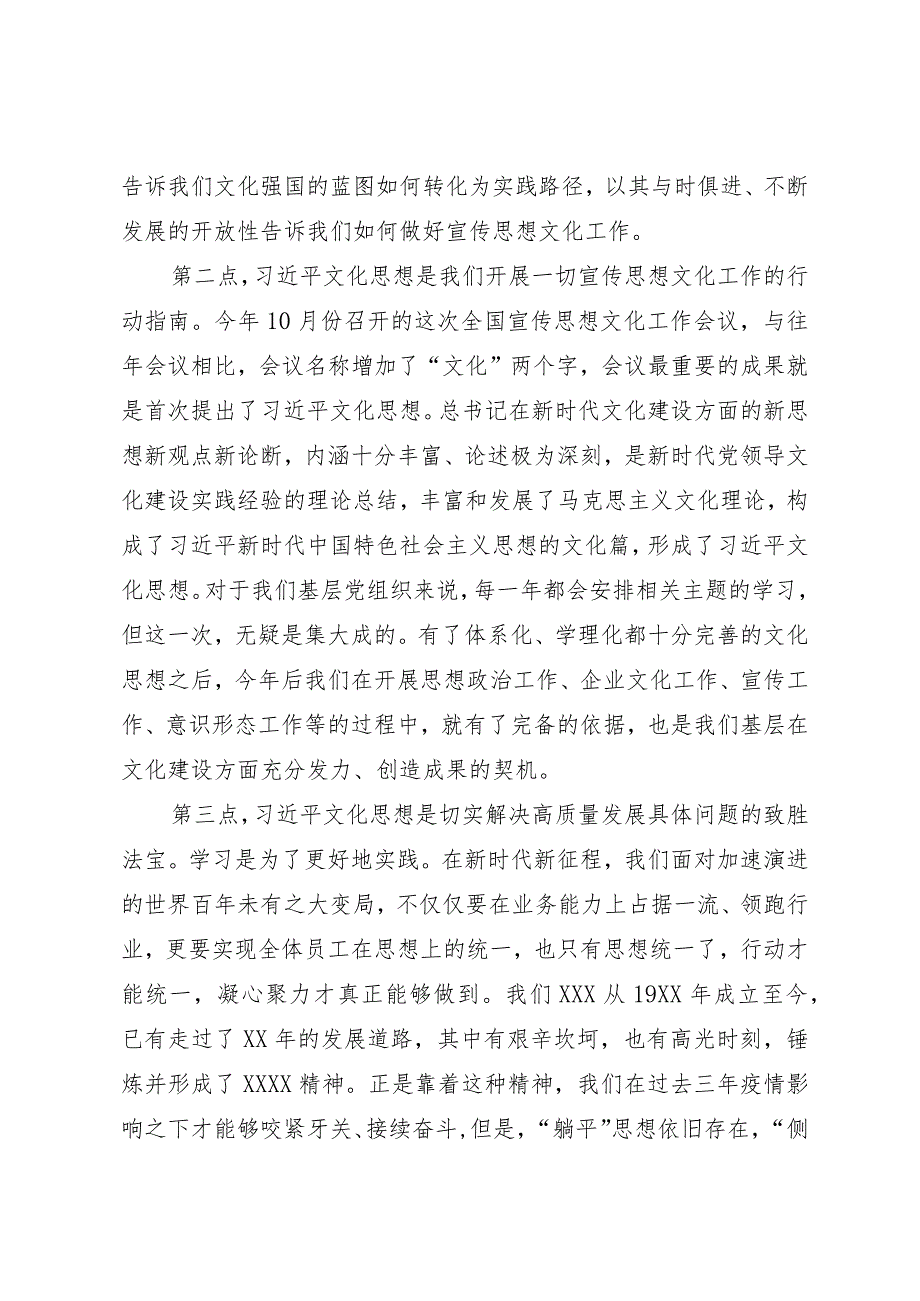 告诉我们文化强国的蓝图如何转化为实践路径，以其与时俱进、不断
发展的开放性告诉我们如何做好宣传思想文化工作。
第二点，习近平文化思想是我们开展一切宣传思想文化工作的行
动指南。今年 10 月份召开的这次全国宣传思想文化工作会议，与往
年会议相比，会议名称增加了“文化”两个字，会议最重要的成果就
是首次提出了习近平文化思想。总书记在新时代文化建设方面的新思
想新观点新论断，内涵十分丰富、论述极为深刻，是新时代党领导文
化建设实践经验的理论总结，丰富和发展了马克思主义文化理论，构
成了习近平新时代中国特色社会主义思想的文化篇，形成了习近平文
化思想。对于我们基层党组织来说，每一年都会安排相关主题的学习，
但这一次，无疑是集大成的。有了体系化、学理化都十分完善的文化
思想之后，今年后我们在开展思想政治工作、企业文化工作、宣传工
作、意识形态工作等的过程中，就有了完备的依据，也是我们基层在
文化建设方面充分发力、创造成果的契机。
第三点，习近平文化思想是切实解决高质量发展具体问题的致胜
法宝。学习是为了更好地实践。在新时代新征程，我们面对加速演进
的世界百年未有之大变局，不仅仅要在业务能力上占据一流、领跑行
业，更要实现全体员工在思想上的统一，也只有思想统一了，行动才
能统一，凝心聚力才真正能够做到。我们 XXX 从 19XX 年成立至今，
已有走过了 XX 年的发展道路，其中有艰辛坎坷，也有高光时刻，锤
炼并形成了 XXXX 精神。正是靠着这种精神，我们在过去三年疫情影
响之下才能够咬紧牙关、接续奋斗,但是，“躺平”思想依旧存在，“侧